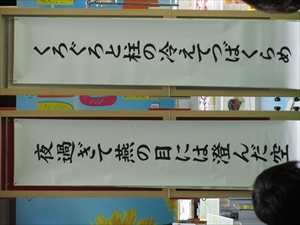 くろぐろと柱の冷えてつばくらめ
夜過ぎて燕の目には澄んだ空